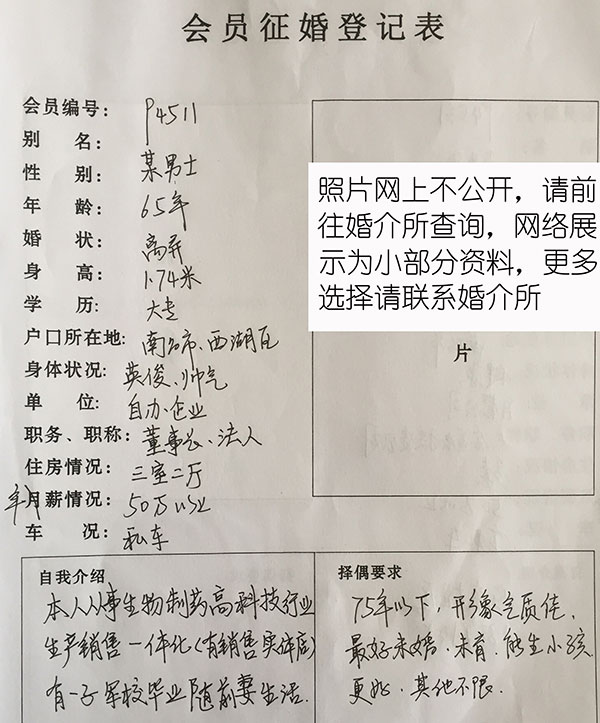 会员征婚登记表
会员编号: P4511
别 名: 某男士
性 别:
年 龄: 65年
婚 状: 离异
身 高: 1.74米
学 历: 大专
户口所在地: 南 市、西湖区
身体状况: 英俊、帅气
单 位: 自办企业
职务、职称: 董事长、法人
住房情况: 三室二厅
年月薪情况: 50万以上
车 况: 私车
照片网上不公开，请前
往婚介所查询，网络展
示为小部分资料，更多
选择请联系婚介所
片
自我介绍
本人从事生物制药高科技行业
生产销售一体化(有销售实体店)
有一子军校毕业随前妻生活.
择偶要求
75年以下，形象气质佳、
最好未婚、未育、能生小孩
更好、其他不限.